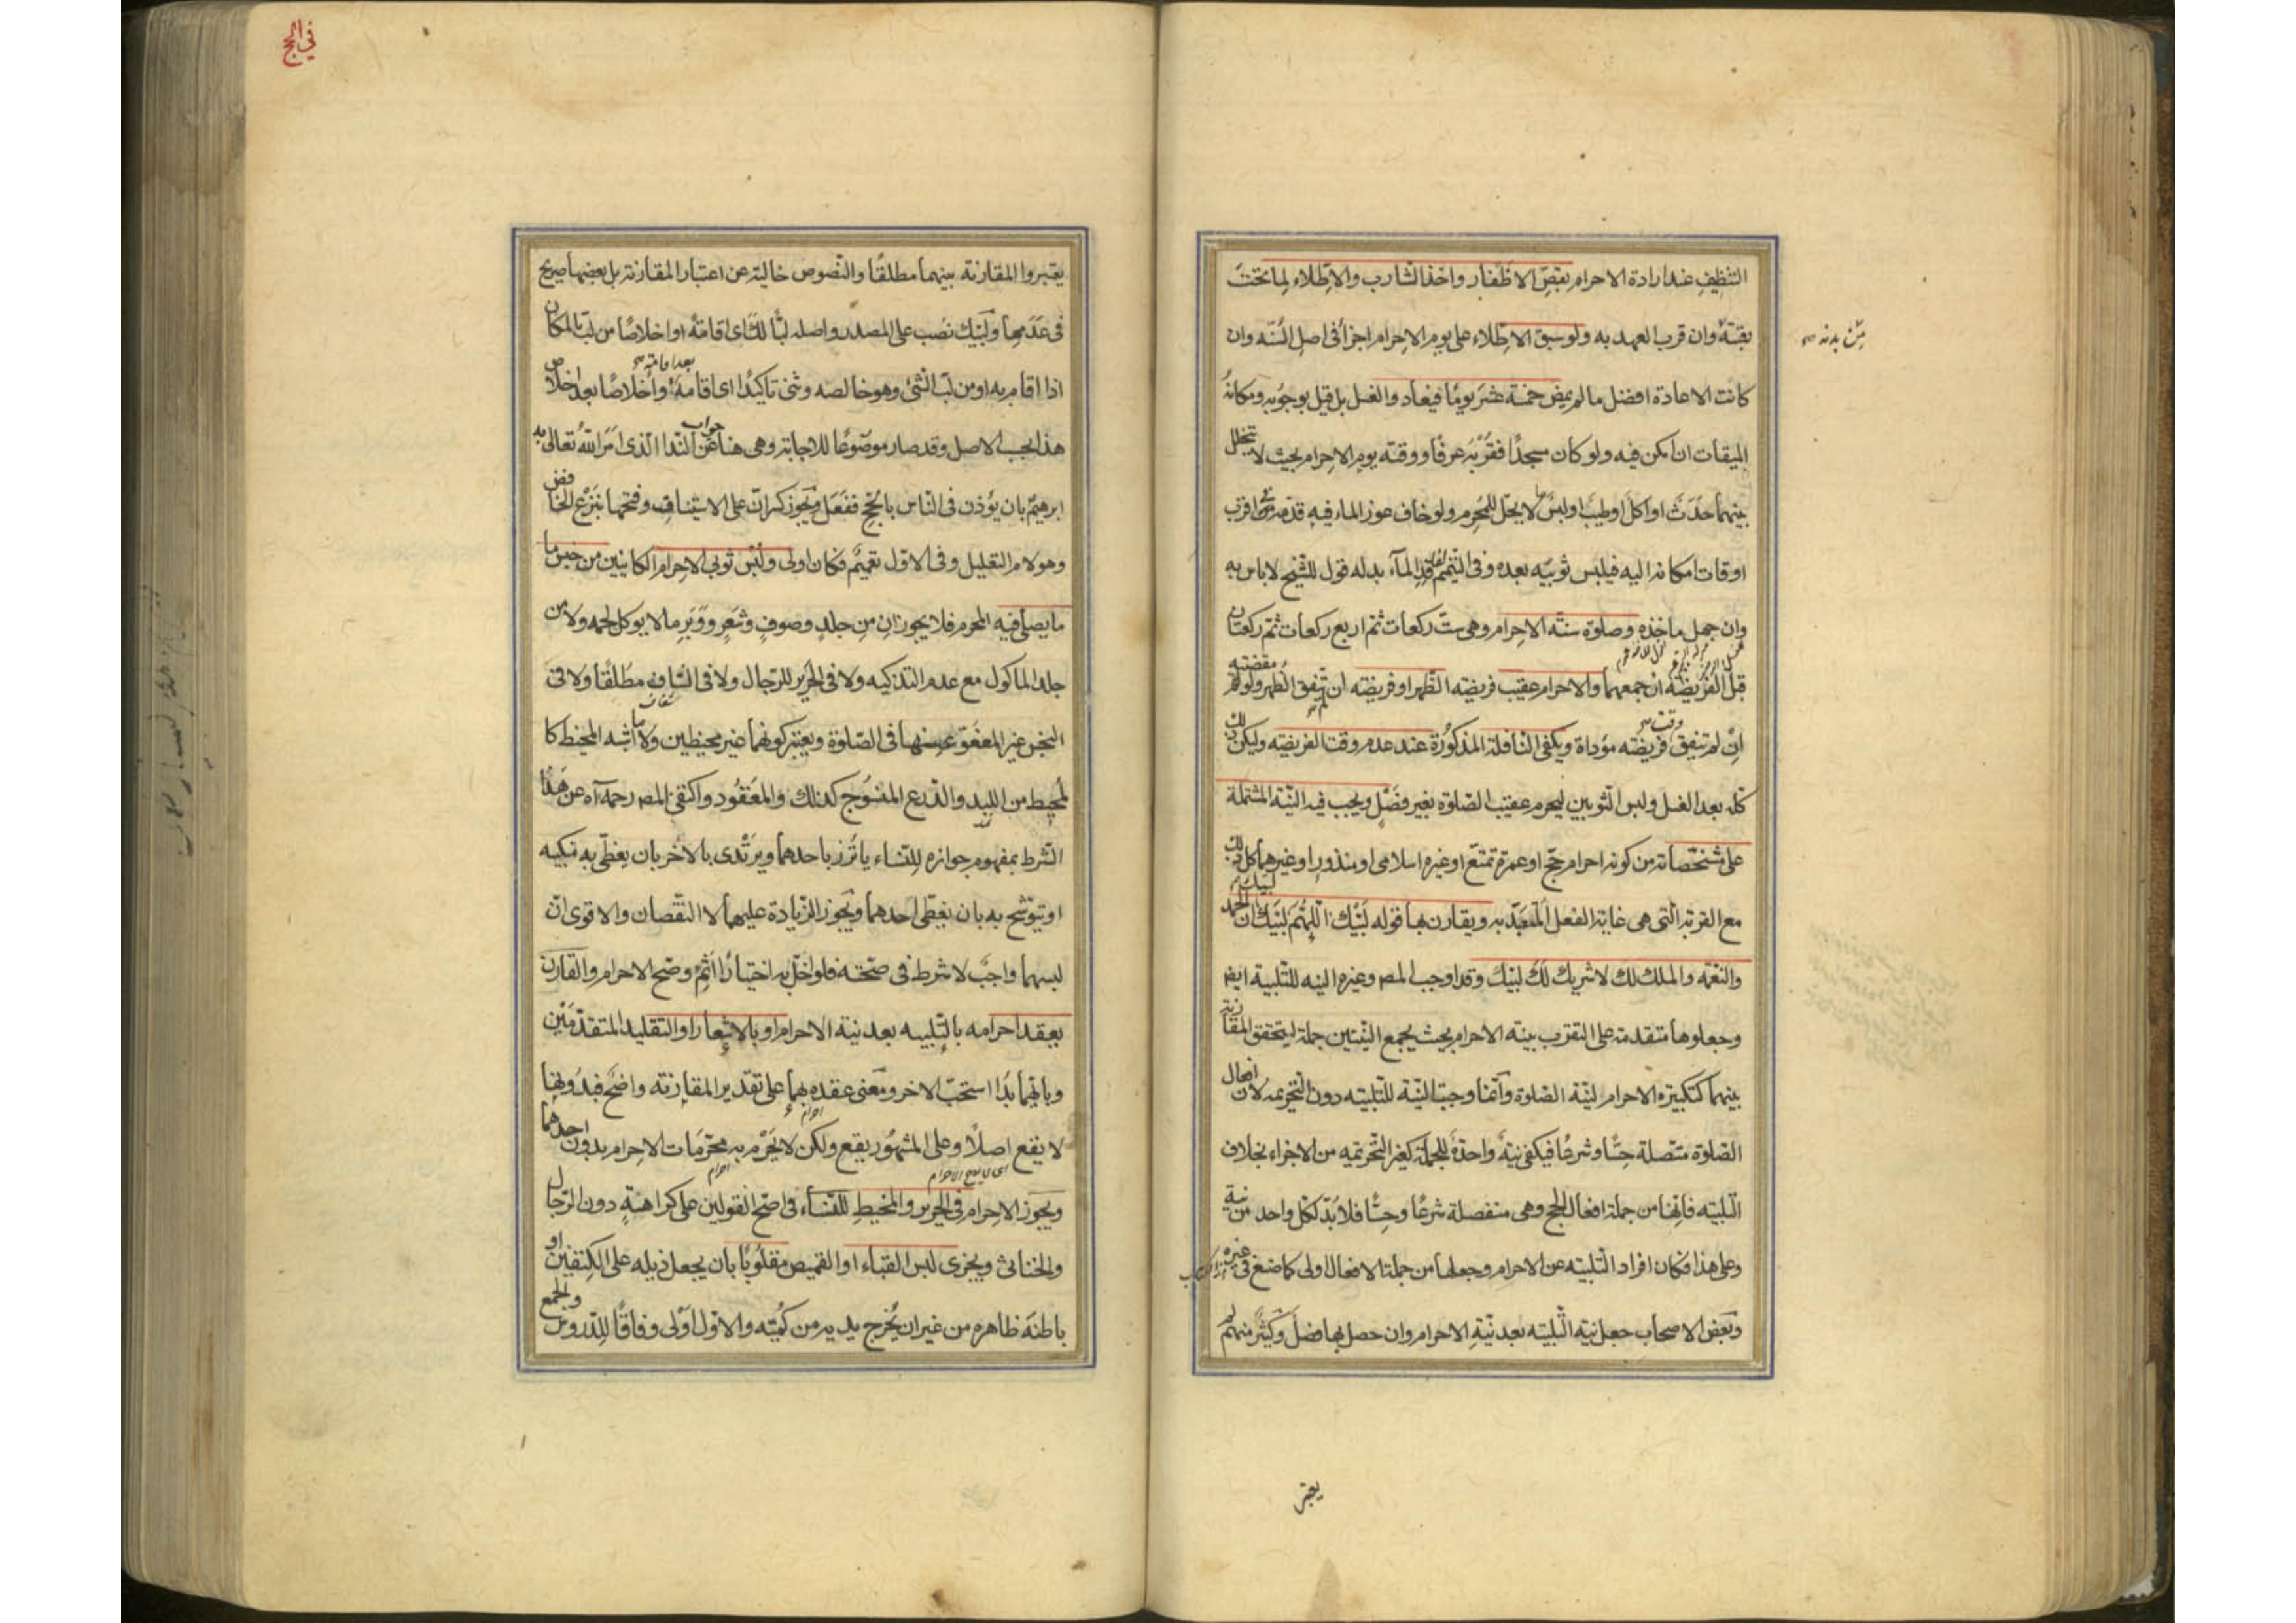 التنظيف عند ارادة الاحرام بقص الاظفار واخذ الشارب والاطلاء لما تحت
بقيّة وان قرب العهد به ولو سبق الاطلاء على يوم الاحرام اجزأ فى اصل السّنّه وان
من بدنه صح
كانت الاعادة افضل ما لم يمض خمسة عشر يومًا فيعاد والغسل بل قيل بوجوبه ومكانه
الميقات ان امكن فيه ولو كان مسجدًا فقربه عرفًا ووقته يوم الاحرام بحيث لا يتخلل
بينهما حدث او اكل او طيب او لبس ما لا يحل للمحرم ولو خاف عوز الماء فيه قدمه فى اقرب
اوقات امكانه اليه فيلبس ثوبيه بعده وفى التيمم لفاقد المآء بدله قول للشيخ لا باس به
وان جهل ماخذه وصلوة سنّة الاحرام وهى ستّ ركعات ثم اربع ركعات ثم ركعتان
قبل الفريضة ان جمعهما والاحرام عقيب فريضه الظهر او فريضه ان لم يتفق الظهر ولو مقضية
ان لم تتفق وقت فريضه مؤداة ويكفى النافلة المذكورة عند عدم وقت الفريضه وليكن ذلك
كله بعد الغسل ولبس الثوبين ليحرم عقيب الصلوة بغير فصل ويجب فيه النيّة المشتملة
على مشخصاته من كونه احرام حجّ او عمرة تمتع او غيره اسلامى او منذور او غيرهما كل ذلك
مع القربة التى هى غاية الفعل المتعبّد به ويقارن بها قوله لبّيك اللّهمّ لبّيك لبيك ان الحمد
والنعمه والملك لك لا شريك لك لبيك وقد اوجب المص وغيره النيه للتلبية ايض
وجعلوها متقدمة على التقرب بنيّه الاحرام بحيث يجمع النيّتين جملة ليتحقق المقارنة
بينهما كتكبيرة الاحرام لنيّة الصلوة وانما وجبت النيّة للتلبيه دون التحريمه لان افعال
الصلوة متّصلة حسًّا وشرعًا فيكفى نيّة واحدة للجملة كغير التحريمه من الاجزاء بخلاف
التلبيه فانها من جملة افعال الحج وهى منفصلة شرعًا وحسًّا فلا بدّ لكل واحد من نية
وعلى هذا فكان افراد التلبيه عن الاحرام وجعلها من جملة الافعال اولى كما صنع فى غيره
وبعض الاصحاب جعل نية التلبيه بعد نيّة الاحرام وان حصل بها فصل وكثير منهم لم
يعتبر
فى الحج
يعتبروا المقارنة بينهما مطلقًا والنصوص خالية عن اعتبار المقارنة بل بعضها صريح
فى عدمها ولبّيك نصب على المصدر واصله لبًّا لك اى اقامة او اخلاصًا من لبّ بالمكان
اذا اقام به او من لبّ الشئ وهو خالصه وثنى تاكيدًا اى اقامة بعد اقامة صح واخلاصًا بعد اخلاص
هذا بحسب الاصل وقد صار موضوعًا للاجابة وهى هنا جواب عن النّدا الّذى امر الله تعالى به
ابرهيم بان يؤذن فى الناس بالحج ففعل ويجوز كسر انّ على الاستيناف وفتحها بنزع الخافض
وهو لام التعليل وفى الاول تعميم فكان اولى ولبس ثوبى الاحرام الكاينين من جنس ما
ما يصلى فيه المحرم فلا يجوز ان من جلد وصوف وشعر ووبر ما لا يوكل لحمه ولا من
جلد الماكول مع عدم التذكيه ولا فى الحرير للرجال ولا فى الشاف مطلقًا ولا فى
النجس غير المعفو عنها فى الصلوة ويعتبر كونهما غير مخيطين ولا ما اشبه المخيط كا
لمخيط من اللبد والدرع المنسوج كذلك والمعقود واكتفى المص رحمه آه عن هذا
الشرط بمفهوم جوازه للنساء ياتزر باحدهما ويرتدى بالاخر بان يغطى به منكبيه
او يتوشح به بان يغطى احدهما ويجوز الزيادة عليهما لا النقصان والاقوى ان
لبسهما واجب لا شرط فى صحته فلو اخل به اختيارًا اثم وصح الاحرام والقارن
يعقد احرامه بالتلبيه بعد نية الاحرام او بالاشعار او التقليد المتقدمين
وبايهما بدا استحب الاخر ومعنى عقده بهما على تقدير المقارنه واضح فبدونها
لا يقع اصلًا وعلى المشهور يقع ولكن لا يحرم به محرمات الاحرام بدون احدهما
ويجوز الاحرام فى الحرير والمخيط للنساء فى اصح القولين على كراهة دون الرجال
والخناثى ويجزى لبس القباء او القميص مقلوبًا بان يجعل ذيله على الكتفين او
باطنه ظاهره من غير ان يخرج يديه من كميه والاول اولى وفاقًا للدروس والجمع